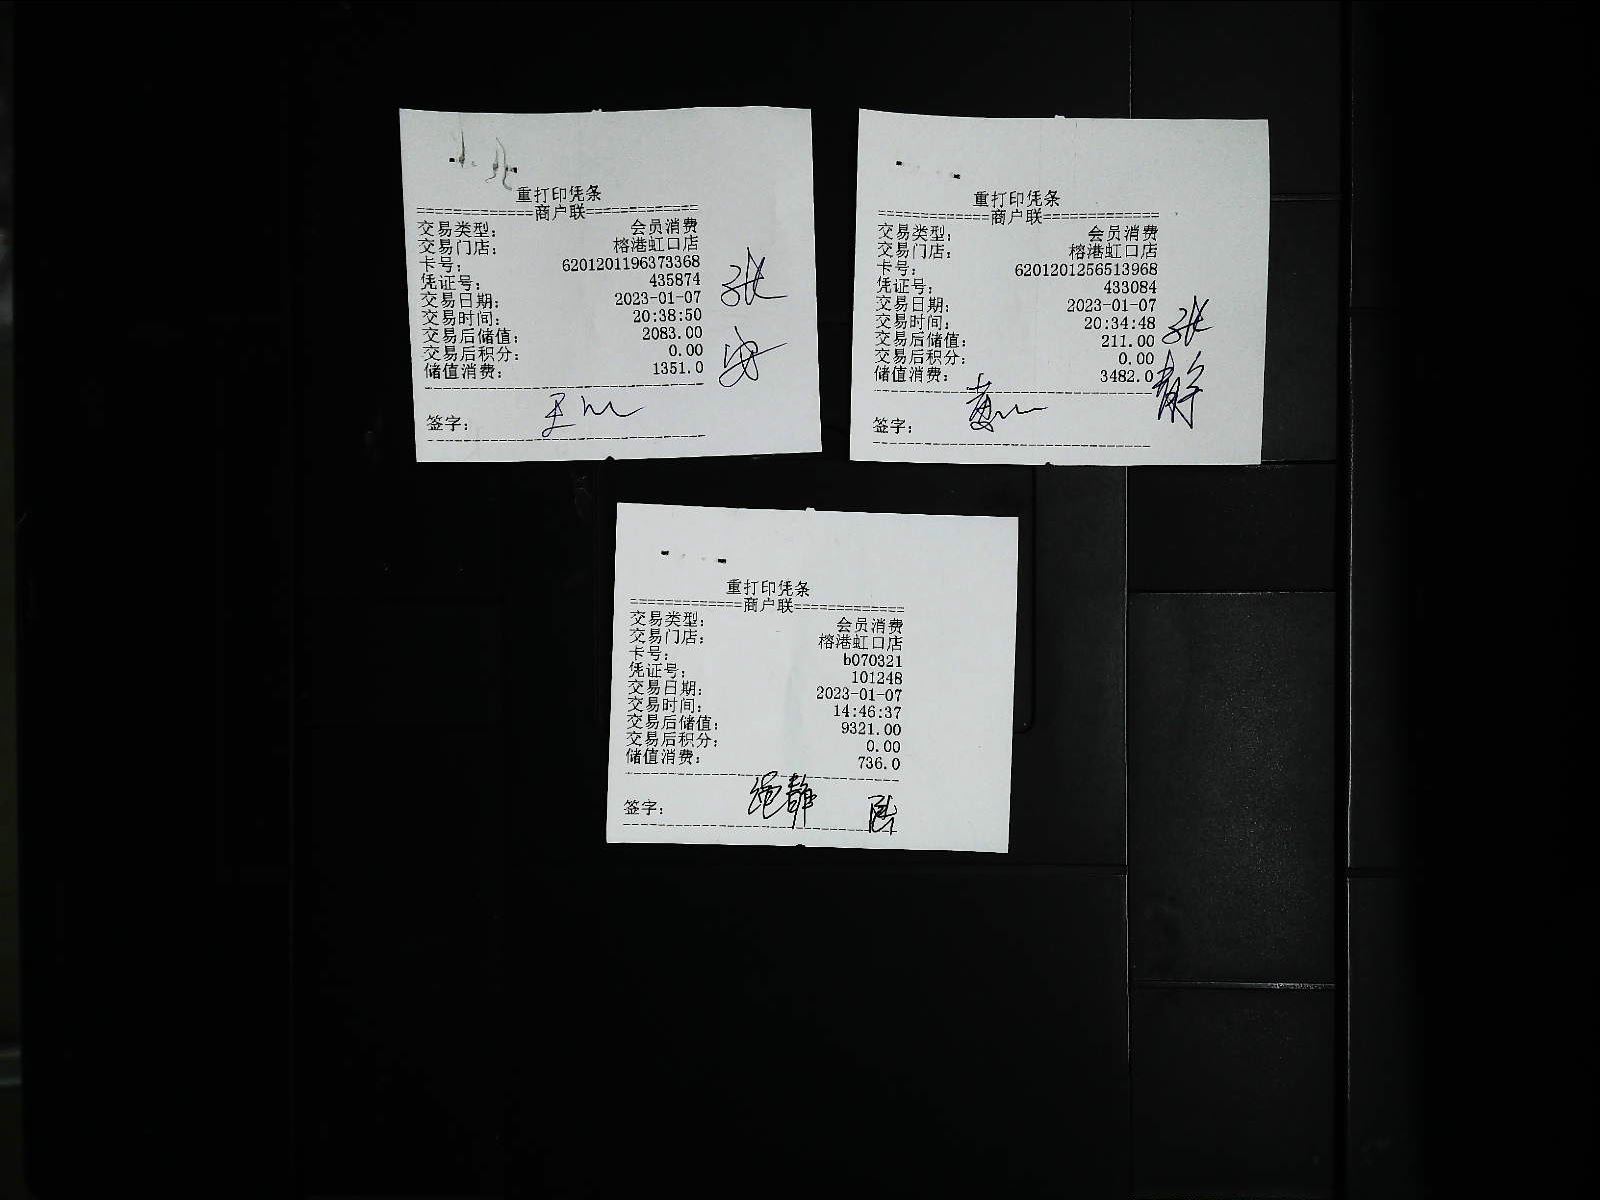 重打印凭条
=============商户联=============
交易类型： 会员消费
交易门店： 榕港虹口店
卡号： 6201201196373368
凭证号： 435874
交易日期： 2023-01-07
交易时间： 20:38:50
交易后储值： 2083.00
交易后积分： 0.00
储值消费： 1351.0
签字：
张
重打印凭条
=============商户联=============
交易类型： 会员消费
交易门店： 榕港虹口店
卡号： 6201201256513968
凭证号： 433084
交易日期： 2023-01-07
交易时间： 20:34:48
交易后储值： 211.00
交易后积分： 0.00
储值消费： 3482.0
签字： 黄
张
静
重打印凭条
=============商户联=============
交易类型： 会员消费
交易门店： 榕港虹口店
卡号： b070321
凭证号： 101248
交易日期： 2023-01-07
交易时间： 14:46:37
交易后储值： 9321.00
交易后积分： 0.00
储值消费： 736.0
签字： 静